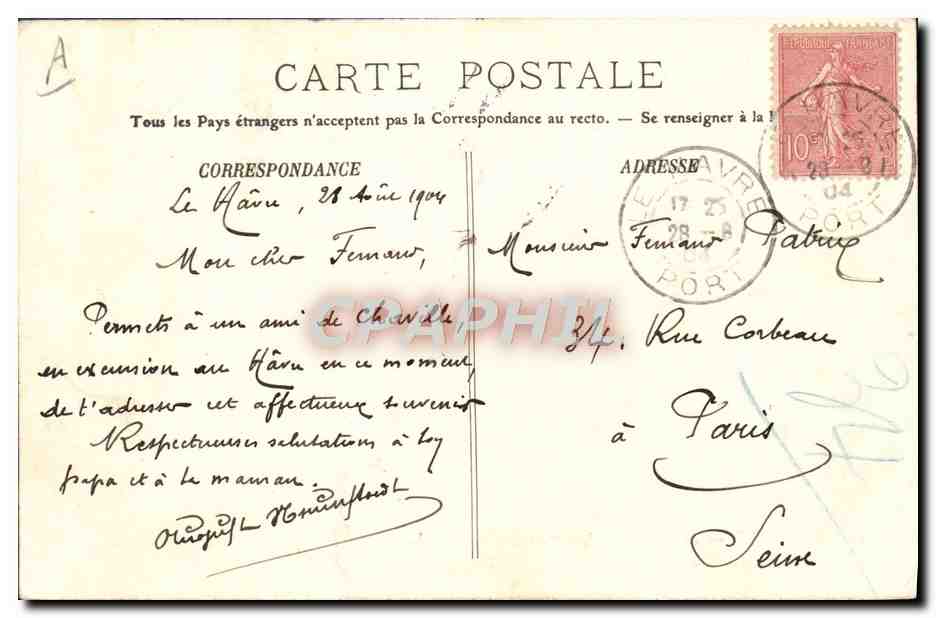 A
CARTE POSTALE
Tous les Pays étrangers n'acceptent pas la Correspondance au recto. — Se renseigner à la
CORRESPONDANCE
Le Hâvre, 28 Août 1904
Mon cher Fernand,
Permets à un ami de Chaville,
en excursion au Hâvre en ce moment,
de t'adresser cet affectueux souvenir
Respectueuses salutations à ton
papa et à ta maman.
August
ADRESSE
Monsieur Fernand Patrix
34, Rue Corbeau
à Paris
Seine
REPUBLIQUE FRANÇAISE
10c
LE HAVRE
17 25
28 - 8
04
PORT
HAVRE
28 8
04
PORT
CPAPHIL